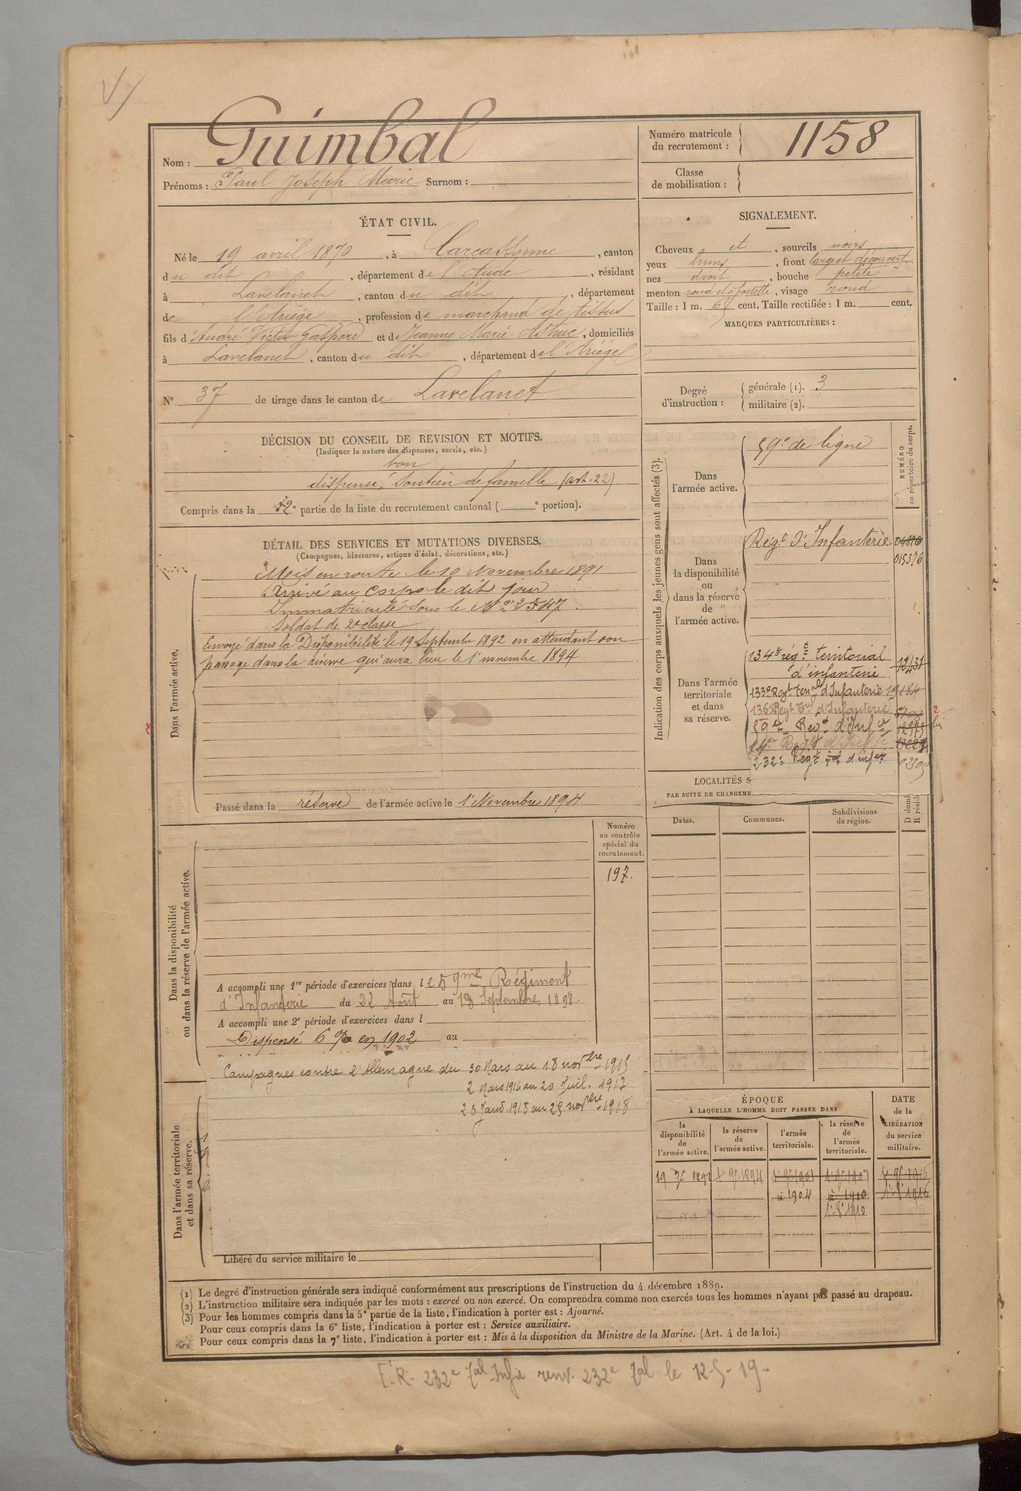 Nom : Guimbal
Prénoms : Paul Joseph Marie Surnom :
Numéro matricule du recrutement : 1158
Classe de mobilisation :
ÉTAT CIVIL.
Né le 19 avril 1870, à Carcassonne, canton
du dit, département de l'Aude, résidant
à Lavelanet, canton du dit, département
de l'Ariège, profession de marchand de tissus
fils d'André Victor Gaspard et de Jeanne Marie Astruc, domiciliés
à Lavelanet, canton du dit, département de l'Ariège
N° 37 de tirage dans le canton de Lavelanet
SIGNALEMENT.
Cheveux et, sourcils noirs
yeux bruns, front large et découvert
nez droit, bouche petite
menton rond et à fossette, visage rond
Taille : 1 m. 65 cent. Taille rectifiée : 1 m. cent.
MARQUES PARTICULIÈRES :
Degré d'instruction : générale (1). 3
militaire (2).
DÉCISION DU CONSEIL DE REVISION ET MOTIFS.
(Indiquer la nature des dispenses, sursis, etc.)
bon
dispensé, soutien de famille (art. 22)
Compris dans la 2e partie de la liste du recrutement cantonal ( e portion).
DÉTAIL DES SERVICES ET MUTATIONS DIVERSES.
(Campagnes, blessures, actions d'éclat, décorations, etc.)
Dans l'armée active.
Mis en route le 12 Novembre 1891
Arrivé au corps le dit jour
Immatriculé sous le N°
Soldat de 2e classe
Envoyé dans la Disponibilité le 19 Septembre 1892 en attendant son
passage dans la réserve qui aura lieu le 1er novembre 1894
Passé dans la réserve de l'armée active le 1er Novembre 1894
Indication des corps auxquels les jeunes gens sont affectés (3).
NUMÉRO au répertoire du corps.
Dans l'armée active.
59e de ligne
Dans la disponibilité ou dans la réserve de l'armée active.
Régt d'Infanterie
015376
Dans l'armée territoriale et dans sa réserve.
134e rég. territorial
d'infanterie
133e Régt Terral d'Infanterie
136e Régt Ter d'Infanterie
59e Regt d'Infie
14e Regt d'Infie
232e Regt d'infie
LOCALITÉS S
PAR SUITE DE CHANGEME
Dates.
Communes.
Subdivisions de région.
Dans la disponibilité ou dans la réserve de l'armée active.
Numéro au contrôle spécial du recrutement.
197.
A accompli une 1re période d'exercices dans le 59me Régiment
d'Infanterie du 22 Août au 18 Septembre 1898.
A accompli une 2e période d'exercices dans l
Dispensé 6 % en 1902 au
Campagnes contre l'Allemagne du 30 Mars au 18 novbre 1915
2 Mars 1916 au 20 Juil. 1917
28 Janv 1918 au 25 novbre 1918
Dans l'armée territoriale et dans sa réserve.
Libéré du service militaire le
ÉPOQUE
À LAQUELLE L'HOMME DOIT PASSER DANS
la disponibilité de l'armée active.
la réserve de l'armée active.
l'armée territoriale.
la réserve de l'armée territoriale.
DATE de la LIBÉRATION du service militaire.
1904
1910
1916
(1) Le degré d'instruction générale sera indiqué conformément aux prescriptions de l'instruction du 4 décembre 1889.
(2) L'instruction militaire sera indiquée par les mots : exercé ou non exercé. On comprendra comme non exercés tous les hommes n'ayant pas passé au drapeau.
(3) Pour les hommes compris dans la 5e partie de la liste, l'indication à porter est : Ajourné.
Pour ceux compris dans la 6e liste, l'indication à porter est : Service auxiliaire.
Pour ceux compris dans la 7e liste, l'indication à porter est : Mis à la disposition du Ministre de la Marine. (Art. 4 de la loi.)
232e Tal Infie renv. 232e Tal le 12-5-19-